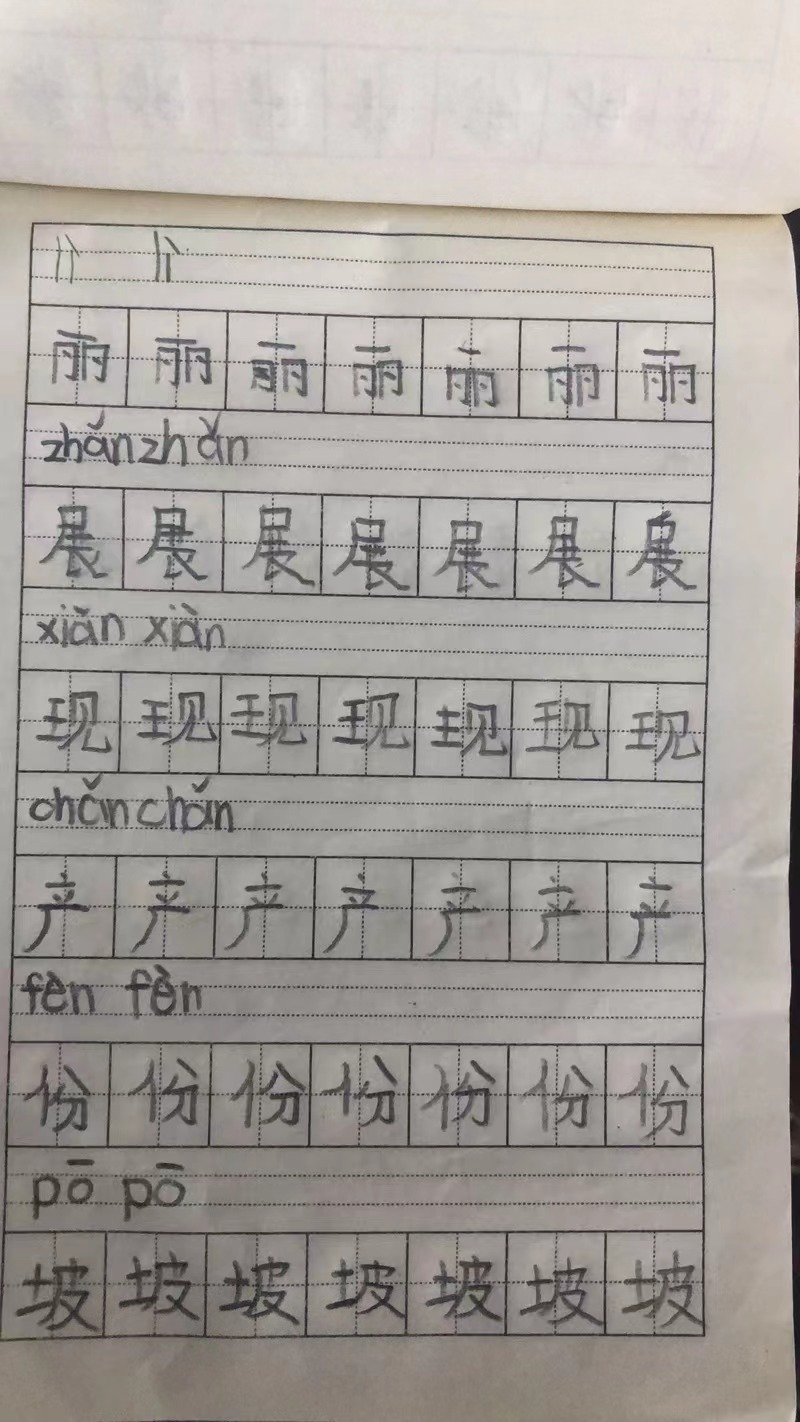 lì lì
丽 丽 丽 丽 丽 丽 丽
zhǎn zhǎn
展 展 展 展 展 展 展
xiǎn xiàn
现 现 现 现 现 现 现
chǎn chǎn
产 产 产 产 产 产 产
fèn fèn
份 份 份 份 份 份 份
pō pō
坡 坡 坡 坡 坡 坡 坡